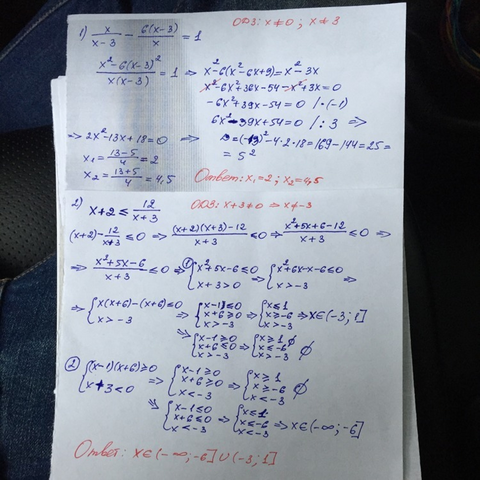 ОДЗ: x ≠ 0; x ≠ 3
1) x/(x-3) - 6(x-3)/x = 1
(x²-6(x-3)²)/(x(x-3)) = 1 => x²-6(x²-6x+9) = x²-3x
x²-6x²+36x-54-x²+3x=0
-6x²+39x-54=0 /·(-1)
6x²-39x+54=0 /:3 =>
=> 2x²-13x+18=0 => D=(-13)²-4·2·18=169-144=25=
= 5²
x₁ = (13-5)/4 = 2
x₂ = (13+5)/4 = 4,5
Ответ: x₁=2; x₂=4,5
2) x+2 ≤ 12/(x+3) ОДЗ: x+3≠0 => x≠-3
(x+2) - 12/(x+3) ≤ 0 => ((x+2)(x+3)-12)/(x+3) ≤ 0 => (x²+5x+6-12)/(x+3) ≤ 0 =>
=> (x²+5x-6)/(x+3) ≤ 0 => ① { x²+5x-6≤0 => { x²+6x-x-6≤0 =>
x+3>0 x>-3
=> { x(x+6)-(x+6)≤0 => { x-1≤0 => { x≤1
x>-3 x+6≥0 x≥-6 => x∈(-3; 1]
x>-3 x>-3
=> { x-1≥0 => { x≥1 ∅
x+6≤0 x≤-6 ∅
x>-3 x>-3
② { (x-1)(x+6)≥0 => { x-1≥0 => { x≥1
x+3<0 x+6≥0 x≥-6 ∅
x<-3 x<-3
=> { x-1≤0 => { x≤1
x+6≤0 x≤-6 => x∈(-∞; -6]
x<-3 x<-3
Ответ: x∈(-∞; -6]∪(-3; 1]